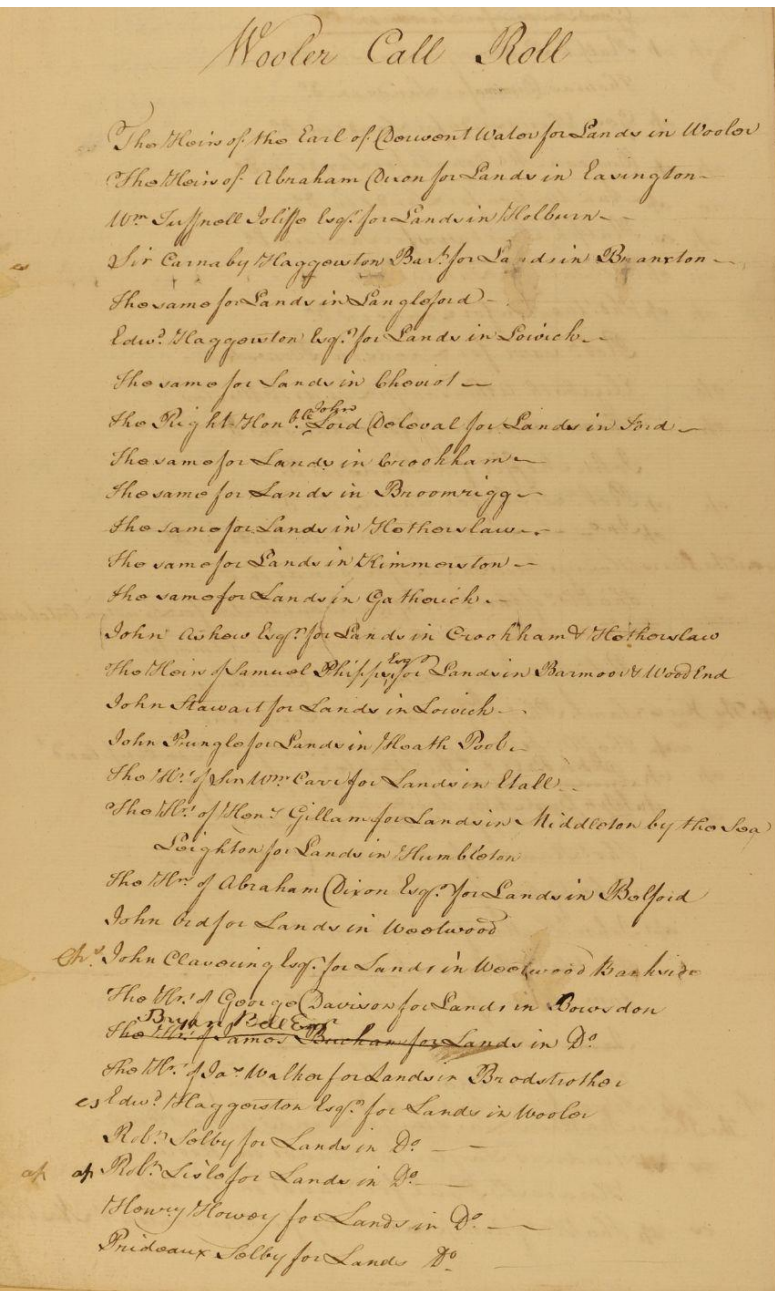 Wooler Call Roll
The Heirs of the Earl of Derwent Water for Lands in Wooler
The Heirs of Abraham Dixon for Lands in Easington
Wm Tuffnell Joliffe Esqr. for Lands in Holburn
Sir Carnaby Haggerston Bart. for Lands in Branxton
The same for Lands in Langleford
Edwd. Haggerston Esqr. for Lands in Lowick
The same for Lands in Cheviot
the Right Honble. John Lord Deleval for Lands in Ford
The same for Lands in Crookham
The same for Lands in Broomrigg
the same for Lands in Hetherslaw
The same for Lands in Kimmerston
the same for Lands in Gatherick
John Askew Esqr. for Lands in Crookham & Hetherslaw
The Heirs of Samuel Phipps Esqr for Lands in Barmoor & Wood End
John Stawart for Lands in Lowick
John Pringle for Lands in Heath Pool
The Hrs. of Sir Wm Carr for Lands in Etall
The Hrs. of Heny. Gillam for Lands in Middleton by the Sea
Leighton for Lands in Humbleton
The Hrs of Abraham Dixon Esqr. for Lands in Belford
John Ord for Lands in Weetwood
Chs. John Clavering Esqr. for Lands in Weetwood Bankside
The Hrs. of George Davison for Lands in Bowsdon
Bryan Esqr
The Hrs. of James for Lands in Do.
The Hrs. of Jas Walker for Lands in Bradstrother
es Edwd. Haggerston Esqr. for Lands in Wooler
Robt. Selby for Lands in Do.
ap ap Robt. Lisle for Lands in Do.
Henry Howey for Lands in Do.
Prideaux Selby for Lands Do.